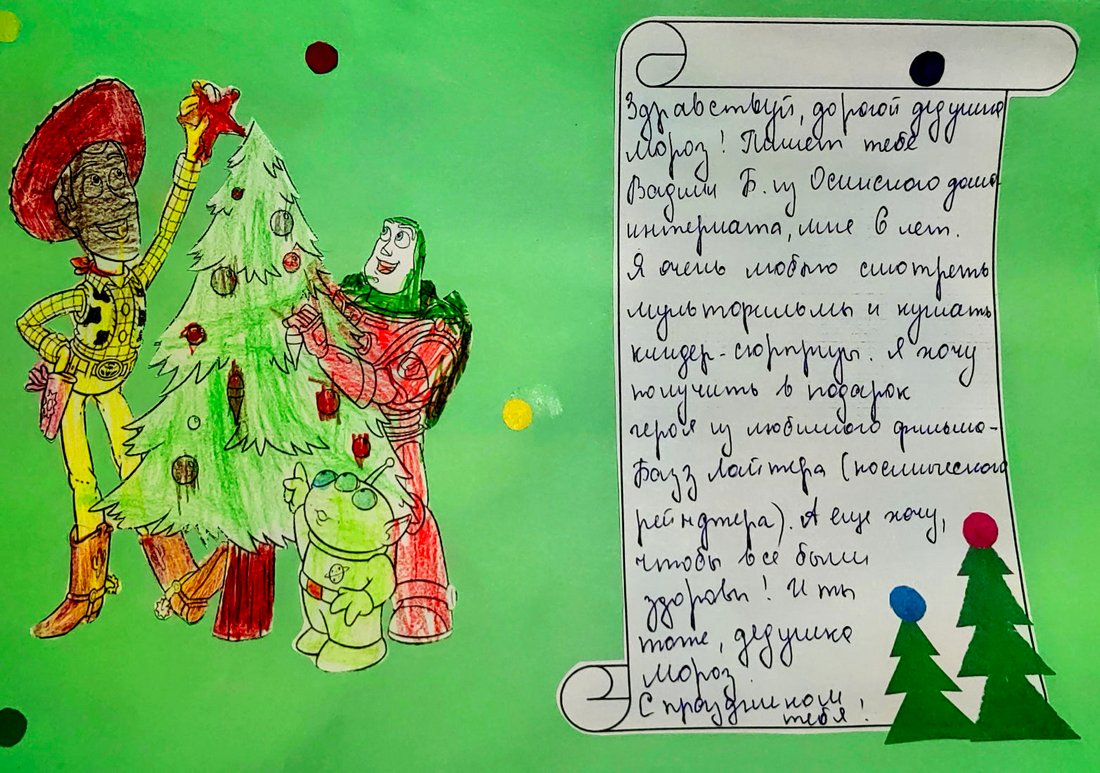 Здравствуй, дорогой дедушка
мороз! Пишет тебе
Вадим Б. из Осинского дома-
интерната, мне 6 лет.
Я очень люблю смотреть
мультфильмы и кушать
киндер-сюрпризы. Я хочу
получить в подарок
героя из любимого фильма-
Базз Лайтера (космического
рейнджера). А еще хочу,
чтобы все были
здоровы! И ты
тоже, дедушка
мороз.
С праздником
тебя!